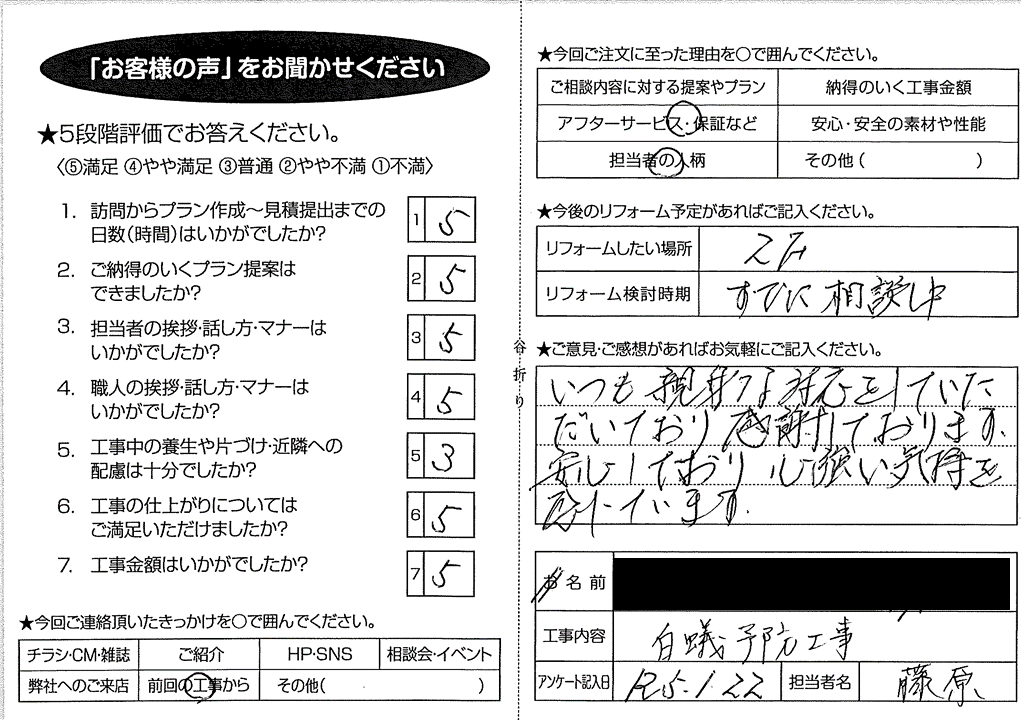 「お客様の声」をお聞かせください
★5段階評価でお答えください。
〈⑤満足 ④やや満足 ③普通 ②やや不満 ①不満〉
1. 訪問からプラン作成～見積提出までの
日数(時間)はいかがでしたか?
1 5
2. ご納得のいくプラン提案は
できましたか?
2 5
3. 担当者の挨拶・話し方・マナーは
いかがでしたか?
3 5
4. 職人の挨拶・話し方・マナーは
いかがでしたか?
4 5
5. 工事中の養生や片づけ・近隣への
配慮は十分でしたか?
5 3
6. 工事の仕上がりについては
ご満足いただけましたか?
6 5
7. 工事金額はいかがでしたか?
7 5
★今回ご連絡頂いたきっかけを○で囲んでください。
チラシ・CM・雑誌 ご紹介 HP・SNS 相談会・イベント
弊社へのご来店 前回の工事から その他( )
谷折り
★今回ご注文に至った理由を○で囲んでください。
ご相談内容に対する提案やプラン 納得のいく工事金額
アフターサービス・保証など 安心・安全の素材や性能
担当者の人柄 その他( )
★今後のリフォーム予定があればご記入ください。
リフォームしたい場所 2F
リフォーム検討時期 すでに相談中
★ご意見・ご感想があればお気軽にご記入ください。
いつも親身な対応をしていた
だいており感謝しております。
安心しており心強い気持を
感じています。
お名前
工事内容 白蟻予防工事
アンケート記入日 R5.1.22 担当者名 藤原